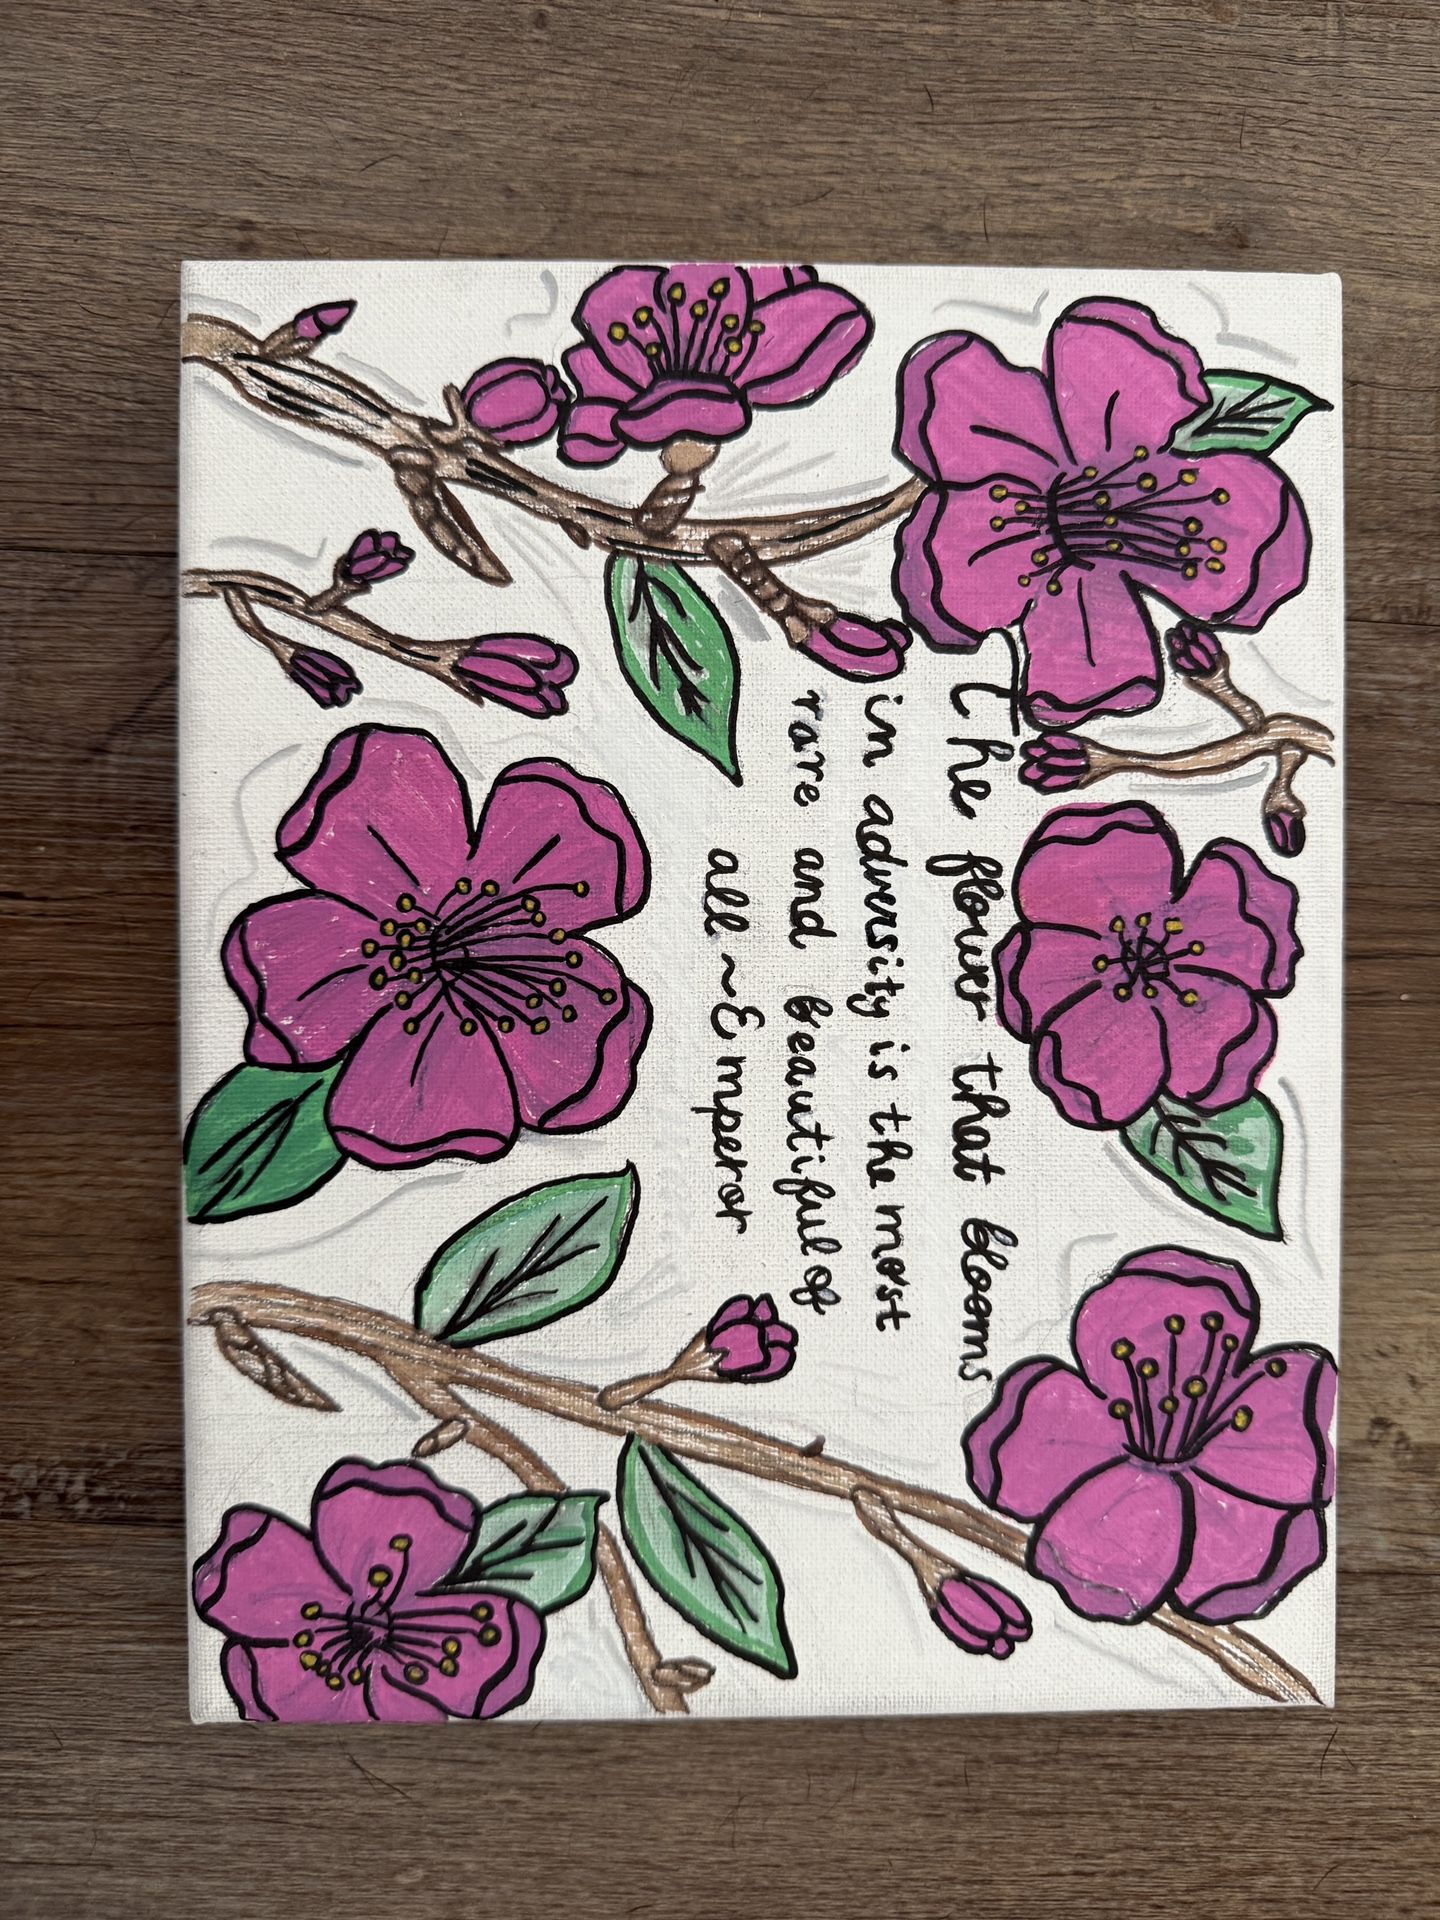 The flower that blooms
in adversity is the most
rare and beautiful of
all ~Emperor